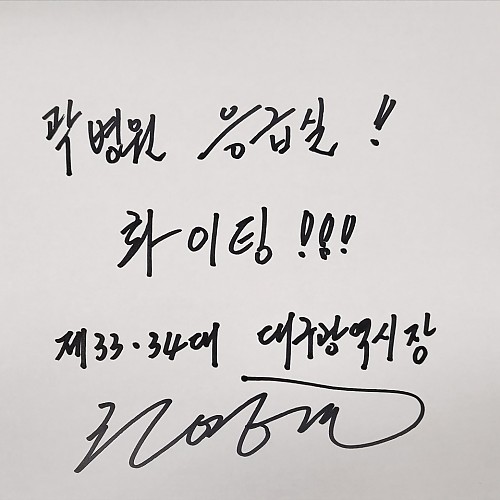 곽병원 응급실!!
화이팅!!!
제33·34대 대구광역시장